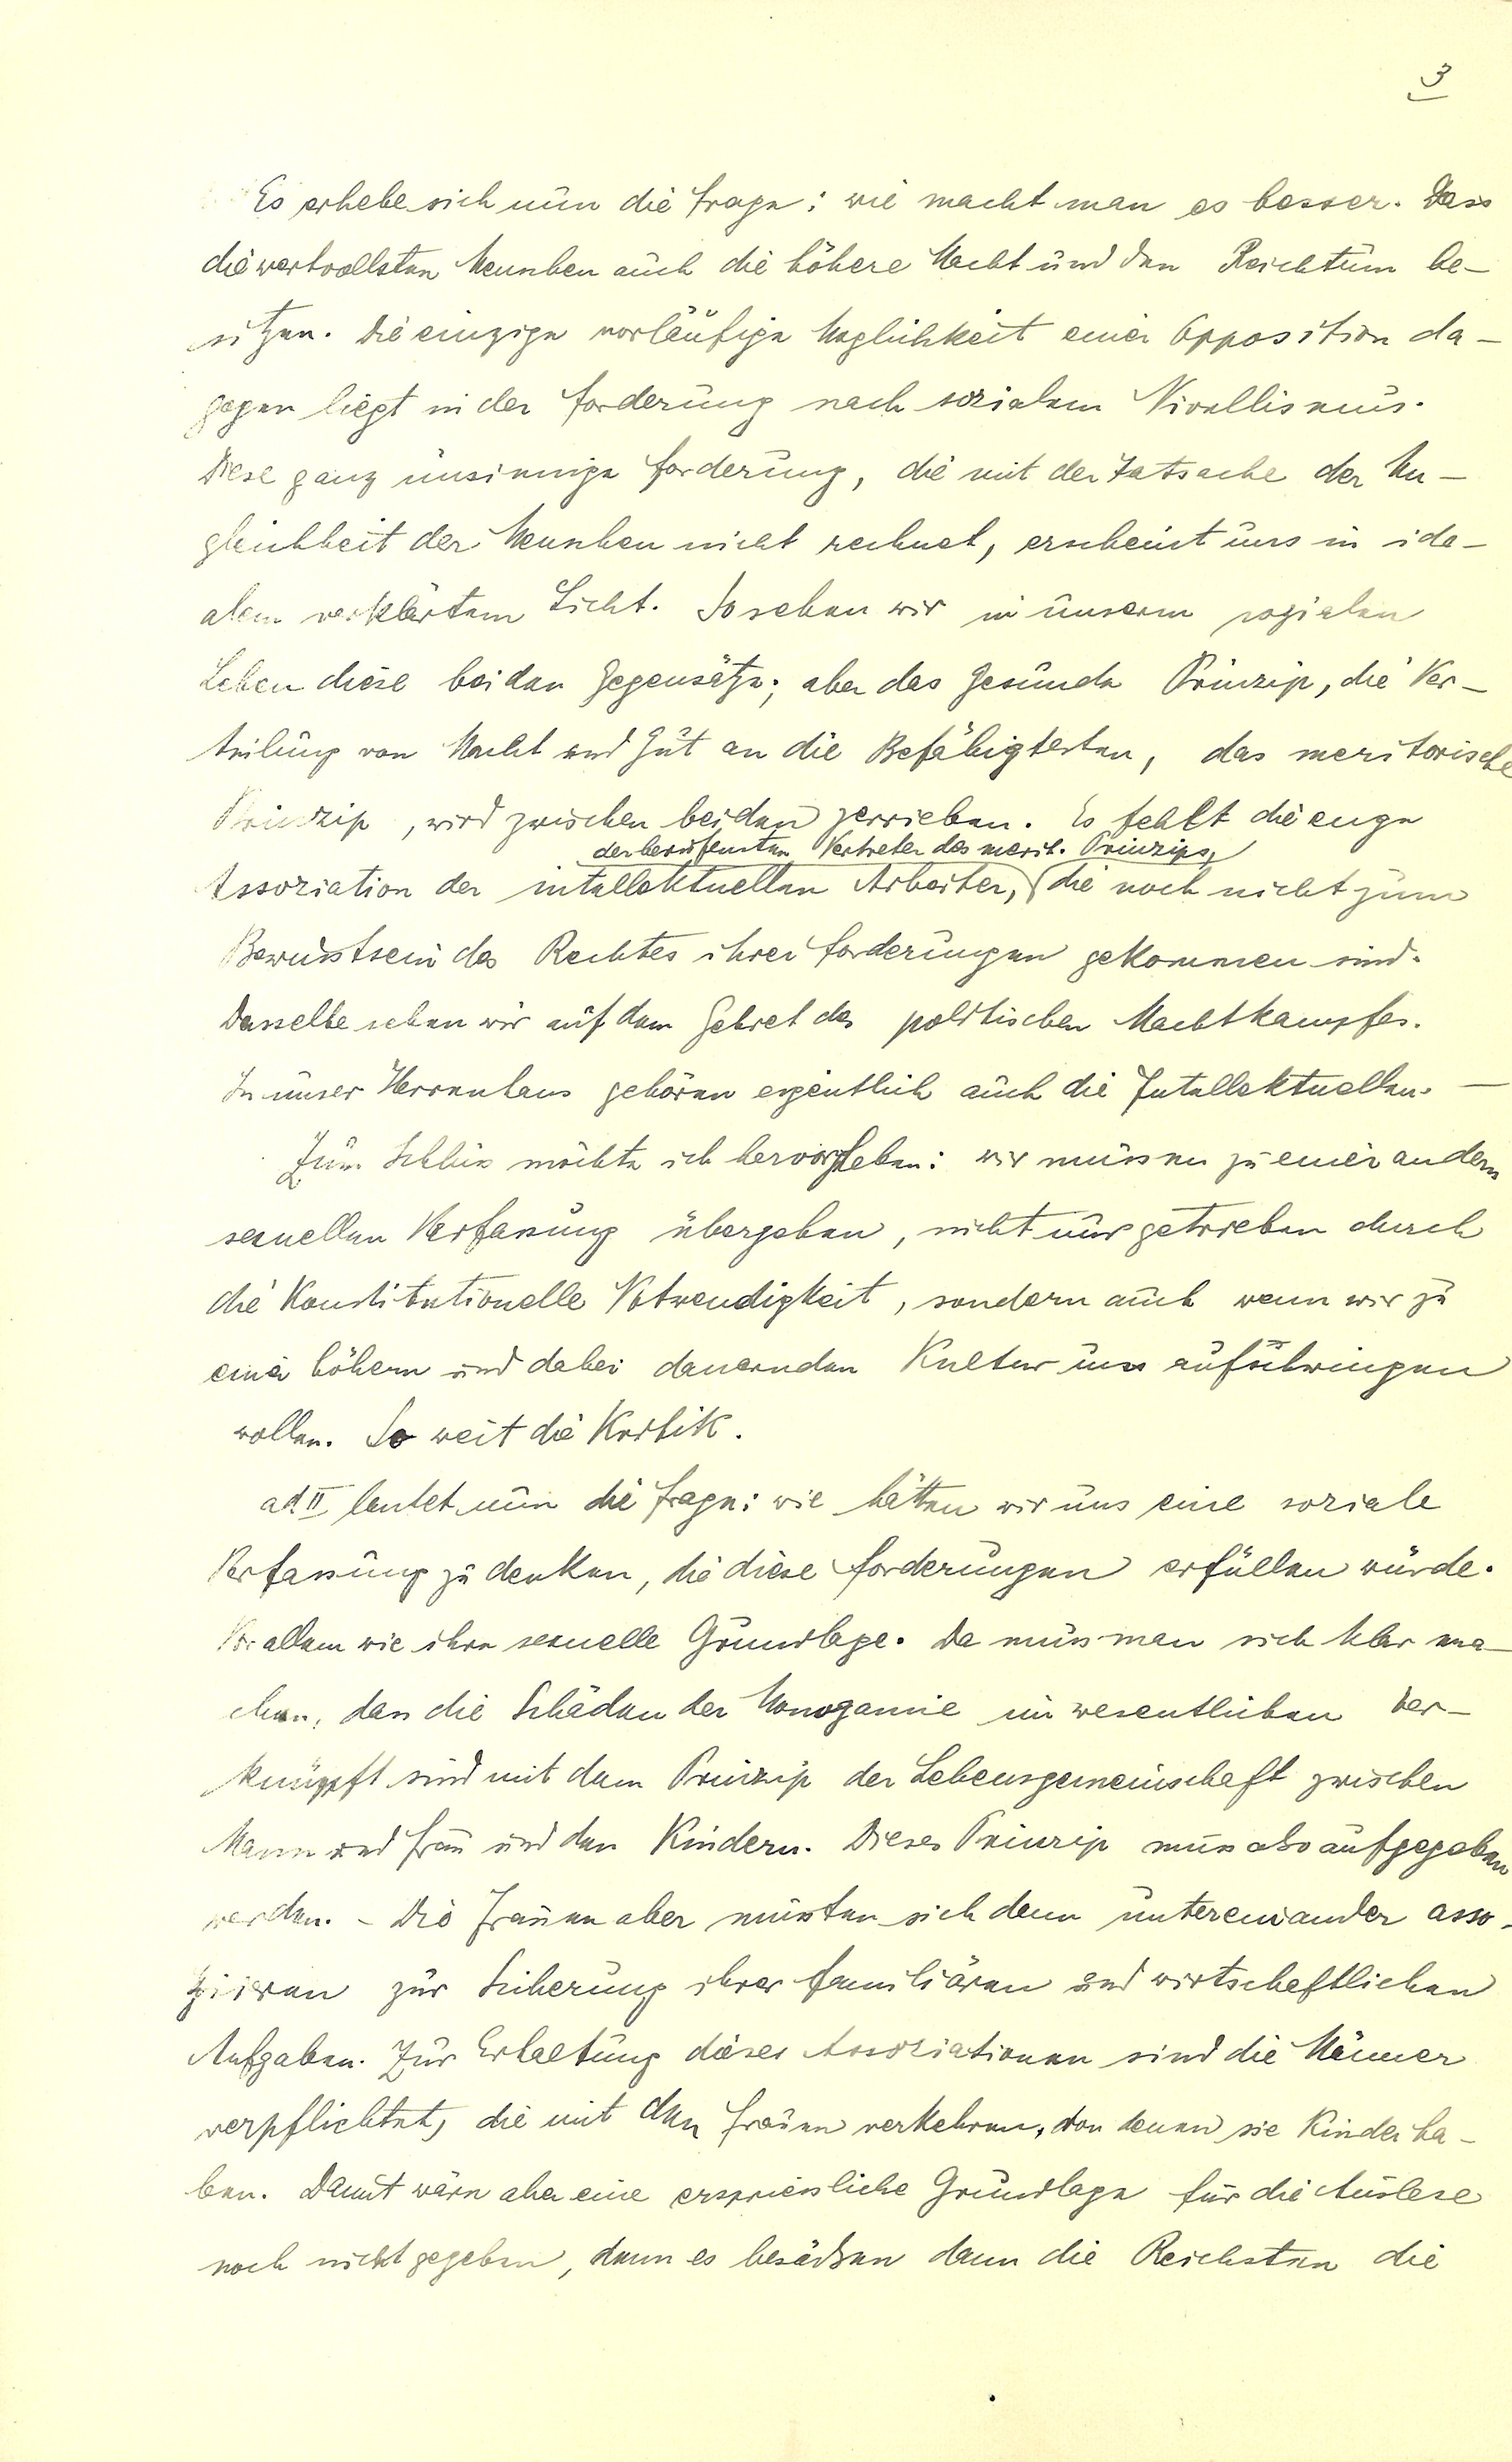 3
Es erhebe sich nun die Frage: wie macht man es besser. Dass
die wertvollsten Menschen auch die höhere Macht und den Reichtum be-
sitzen. Die einzige vorläufige Möglichkeit einer Opposition da-
gegen liegt in der Forderung nach sozialem Nivellismus.
Diese ganz unsinnige Forderung, die mit der Tatsache der Un-
gleichheit der Menschen nicht rechnet, erscheint uns in ide-
alem verklärtem Licht. So sehen wir in unserm sozialen
Leben diese beiden Gegensätze; aber das gesunde Prinzip, die Ver-
teilung von Macht und Gut an die Befähigtesten, das meritorische
Prinzip, wird zwischen beiden zerrieben. Es fehlt die enge
der berufensten Vertreter des merit. Prinzips,
Assoziation der intellektuellen Arbeiter, die noch nicht zum
Bewusstsein des Rechtes ihrer Forderungen gekommen sind.
Dasselbe sehen wir auf dem Gebiet des politischen Machtkampfes.
In unser Herrenhaus gehören eigentlich auch die Intellektuellen. –
Zum Schluss möchte ich hervorheben: wir müssen zu einer andern
sexuellen Verfassung übergehen, nicht nur getrieben durch
die Konstitutionelle Notwendigkeit, sondern auch wenn wir zu
einer höhern und dabei dauernden Kultur uns aufschwingen
wollen. So weit die Kritik.
ad II lautet nun die Frage: wie hätten wir uns eine soziale
Verfassung zu denken, die diese Forderungen erfüllen würde.
Vor allem wie ihre sexuelle Grundlage. Da muss man sich klar ma-
chen, dass die Schäden der Monogamie im wesentlichen ver-
knüpft sind mit dem Prinzip der Lebensgemeinschaft zwischen
Mann und Frau und den Kindern. Dieses Prinzip muss also aufgegeben
werden. – Die Frauen aber müssten sich dann untereinander asso-
ziieren zur Sicherung ihrer familiären und wirtschaftlichen
Aufgaben. Zur Erhaltung dieser Assoziationen sind die Männer
verpflichtet, die mit den Frauen verkehren, von denen sie Kinder ha-
ben. Damit wäre aber eine erspriessliche Grundlage für die Auslese
noch nicht gegeben, denn es besässen dann die Reichsten die